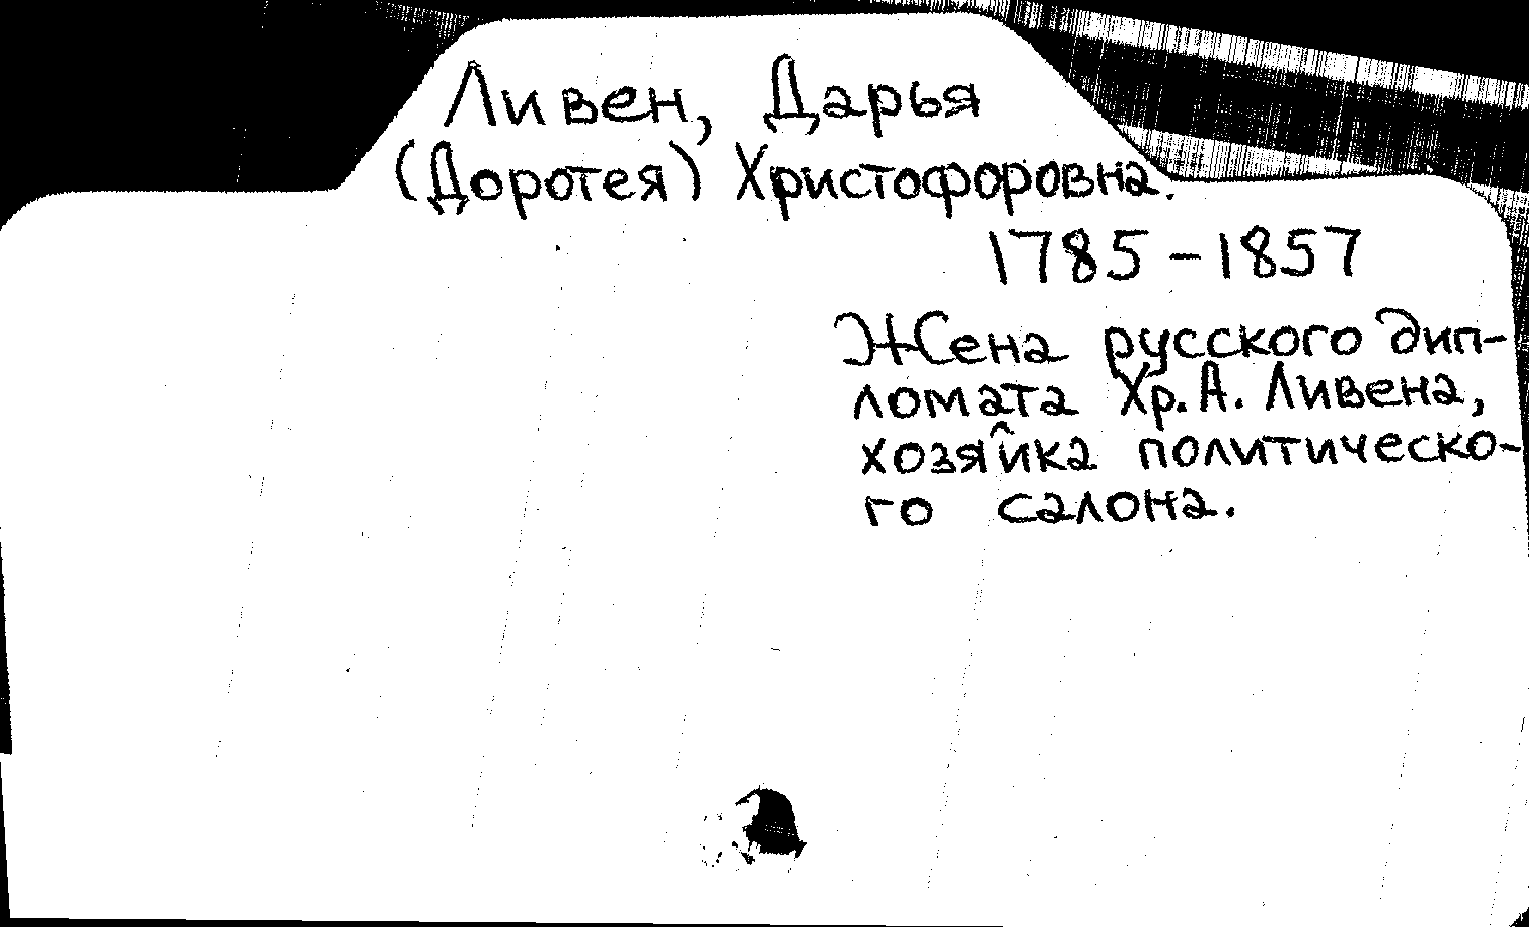 Ливен, Дарья
(Доротея) Христофоровна.
1785-1857
Жена русского дип-
ломата Хр. А. Ливена,
хозяйка политическо-
го салона.